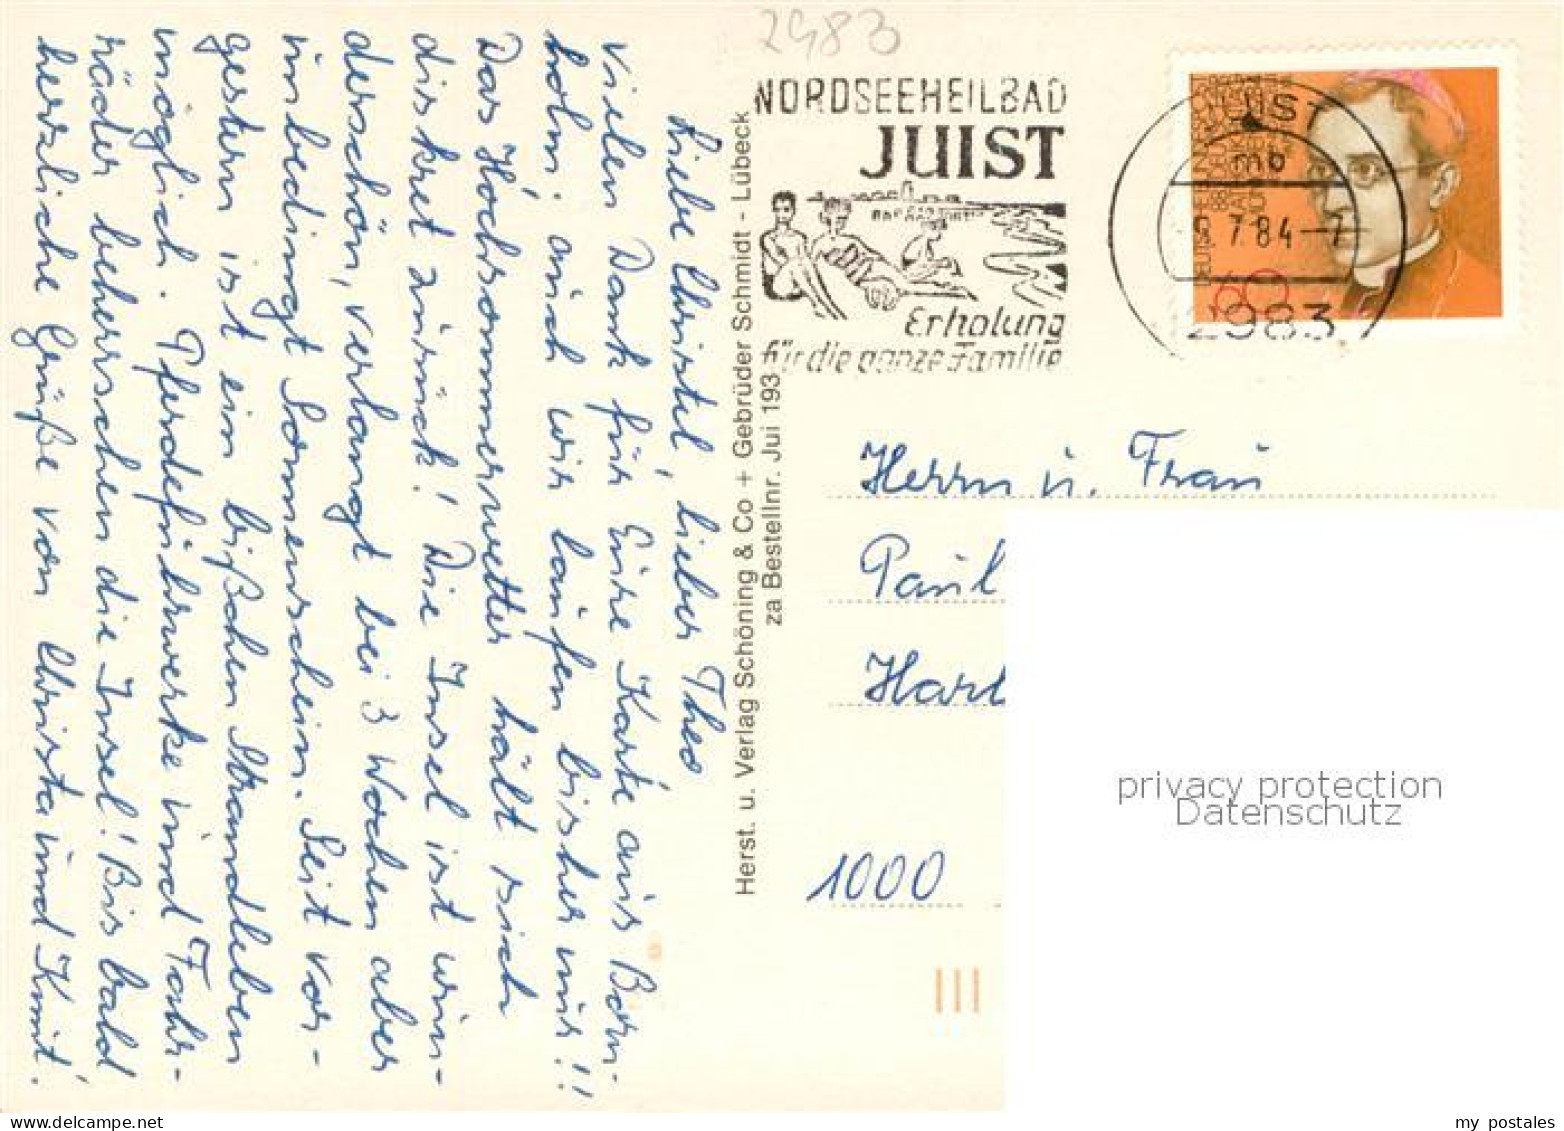 2983
NORDSEEHEILBAD
JUIST
Erholung
für die ganze Familie
JUIST
mb
7.84-7
2983
60
Liebe Christel, lieber Theo
vielen Dank für Eure Karte aus Born-
holm. auch wir laufen bisher nur!!
Das Hochsommerwetter hält sich
diskret zurück! Die Insel ist wun-
derschön, verlangt bei 3 Wochen aber
unbedingt Sonnenschein. Seit vor-
gestern ist ein bißchen Strandleben
möglich. Pferdefuhrwerke und Fahr-
räder beherrschen die Insel! Bis bald
herzliche Grüße von Christa und Knut!
Herst. u. Verlag Schöning & Co + Gebrüder Schmidt - Lübeck
za Bestellnr. Jui 193
Herrn u. Frau
Paul
Hart
1000
privacy protection
Datenschutz
my postales